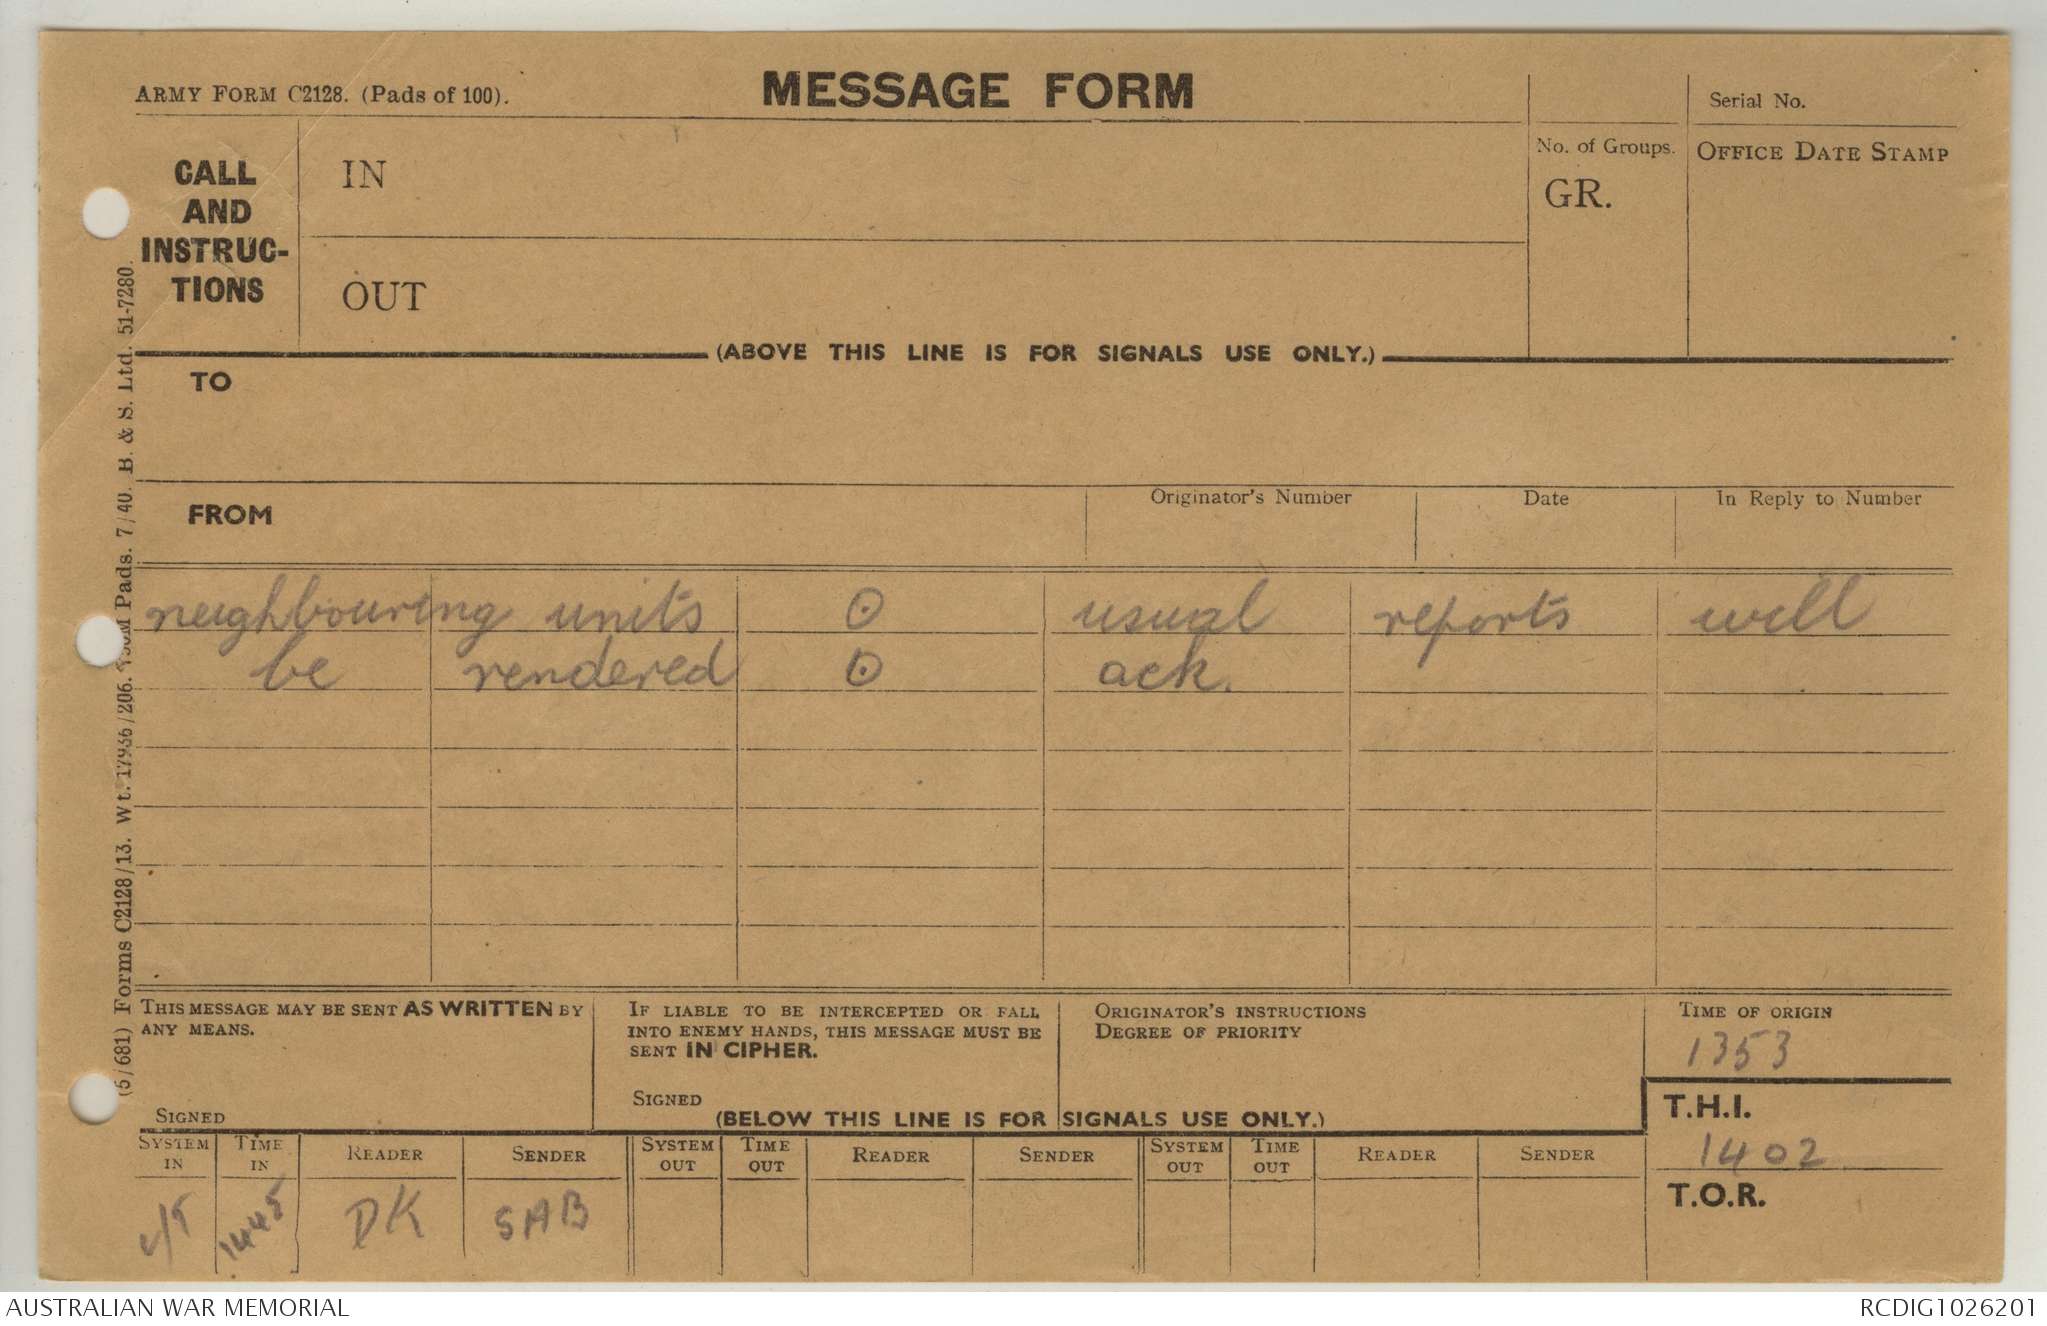 ARMY FORM C2128. (Pads of 100).
MESSAGE FORM
Serial No.
CALL
AND
INSTRUC-
TIONS
IN
OUT
No. of Groups.
GR.
OFFICE DATE STAMP
(ABOVE THIS LINE IS FOR SIGNALS USE ONLY.)
TO
FROM
Originator's Number
Date
In Reply to Number
neighbouring units ⊙ usual reports will
be rendered ⊙ ack.
THIS MESSAGE MAY BE SENT AS WRITTEN BY
ANY MEANS.
SIGNED
IF LIABLE TO BE INTERCEPTED OR FALL
INTO ENEMY HANDS, THIS MESSAGE MUST BE
SENT IN CIPHER.
SIGNED
ORIGINATOR'S INSTRUCTIONS
DEGREE OF PRIORITY
TIME OF ORIGIN
1353
(BELOW THIS LINE IS FOR SIGNALS USE ONLY.)
T.H.I.
1402
T.O.R.
SYSTEM IN
TIME IN
READER
SENDER
SYSTEM OUT
TIME OUT
READER
SENDER
SYSTEM OUT
TIME OUT
READER
SENDER
1445
DK
SAB
(5/681) Forms C2128/13. Wt. 17936/206. Pads. 7/40. B. & S. Ltd. 51-7280.
AUSTRALIAN WAR MEMORIAL
RCDIG1026201